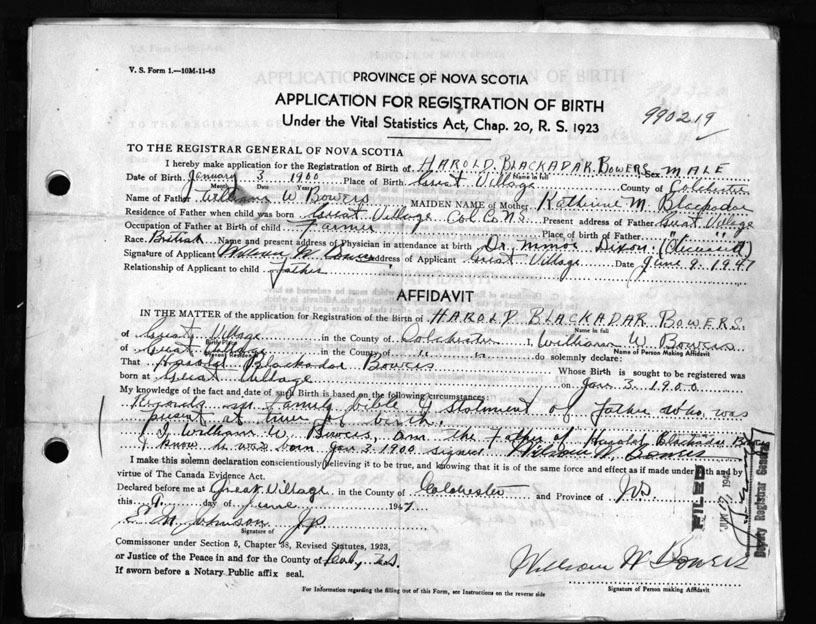 V. S. Form 1.—10M-11-45
PROVINCE OF NOVA SCOTIA
APPLICATION FOR REGISTRATION OF BIRTH
990219
Under the Vital Statistics Act, Chap. 20, R. S. 1923
TO THE REGISTRAR GENERAL OF NOVA SCOTIA
I hereby make application for the Registration of Birth of HAROLD BLACKADAR BOWERS Sex MALE
Name in full
Date of Birth January 3 1900 Place of Birth Great Village County of Colchester
Month Date Year
Name of Father William W Bowers MAIDEN NAME of Mother Katherine M. Blackadar
Residence of Father when child was born Great Village Col. Co N.S. Present address of Father Great Village
Occupation of Father at Birth of child Farmer Place of birth of Father " "
Race British Name and present address of Physician in attendance at birth Dr. Dixon (deceased)
Signature of Applicant William W Bowers address of Applicant Great Village Date June 9. 1947
Relationship of Applicant to child father
AFFIDAVIT
IN THE MATTER of the application for Registration of the Birth of HAROLD BLACKADAR BOWERS
Name in full
of Great Village in the County of Colchester I, William W. Bowers
Birth Place Name of Person Making Affidavit
of Great Village in the County of " " do solemnly declare:
Present Residence
That Harold Blackadar Bowers Whose Birth is sought to be registered was
born at Great Village on Jan. 3. 1900
My knowledge of the fact and date of such Birth is based on the following circumstances:
Records in family bible & statement of father who was
present at time of birth.
I, William W. Bowers, am the father of Harold Blackadar Bowers
I know he was born Jan 3 1900 signed William W. Bowers
I make this solemn declaration conscientiously believing it to be true, and knowing that it is of the same force and effect as if made under oath and by
virtue of The Canada Evidence Act.
Declared before me at Great Village in the County of Colchester and Province of N.S.
this 9 day of June 1947
J.P.
Signature of
Commissioner under Section 5, Chapter 38, Revised Statutes, 1923,
or Justice of the Peace in and for the County of
If sworn before a Notary Public affix seal.
William W Bowers
Signature of Person making Affidavit
For Information regarding the filling out of this Form, see Instructions on the reverse side
FILED
Deputy Registrar General